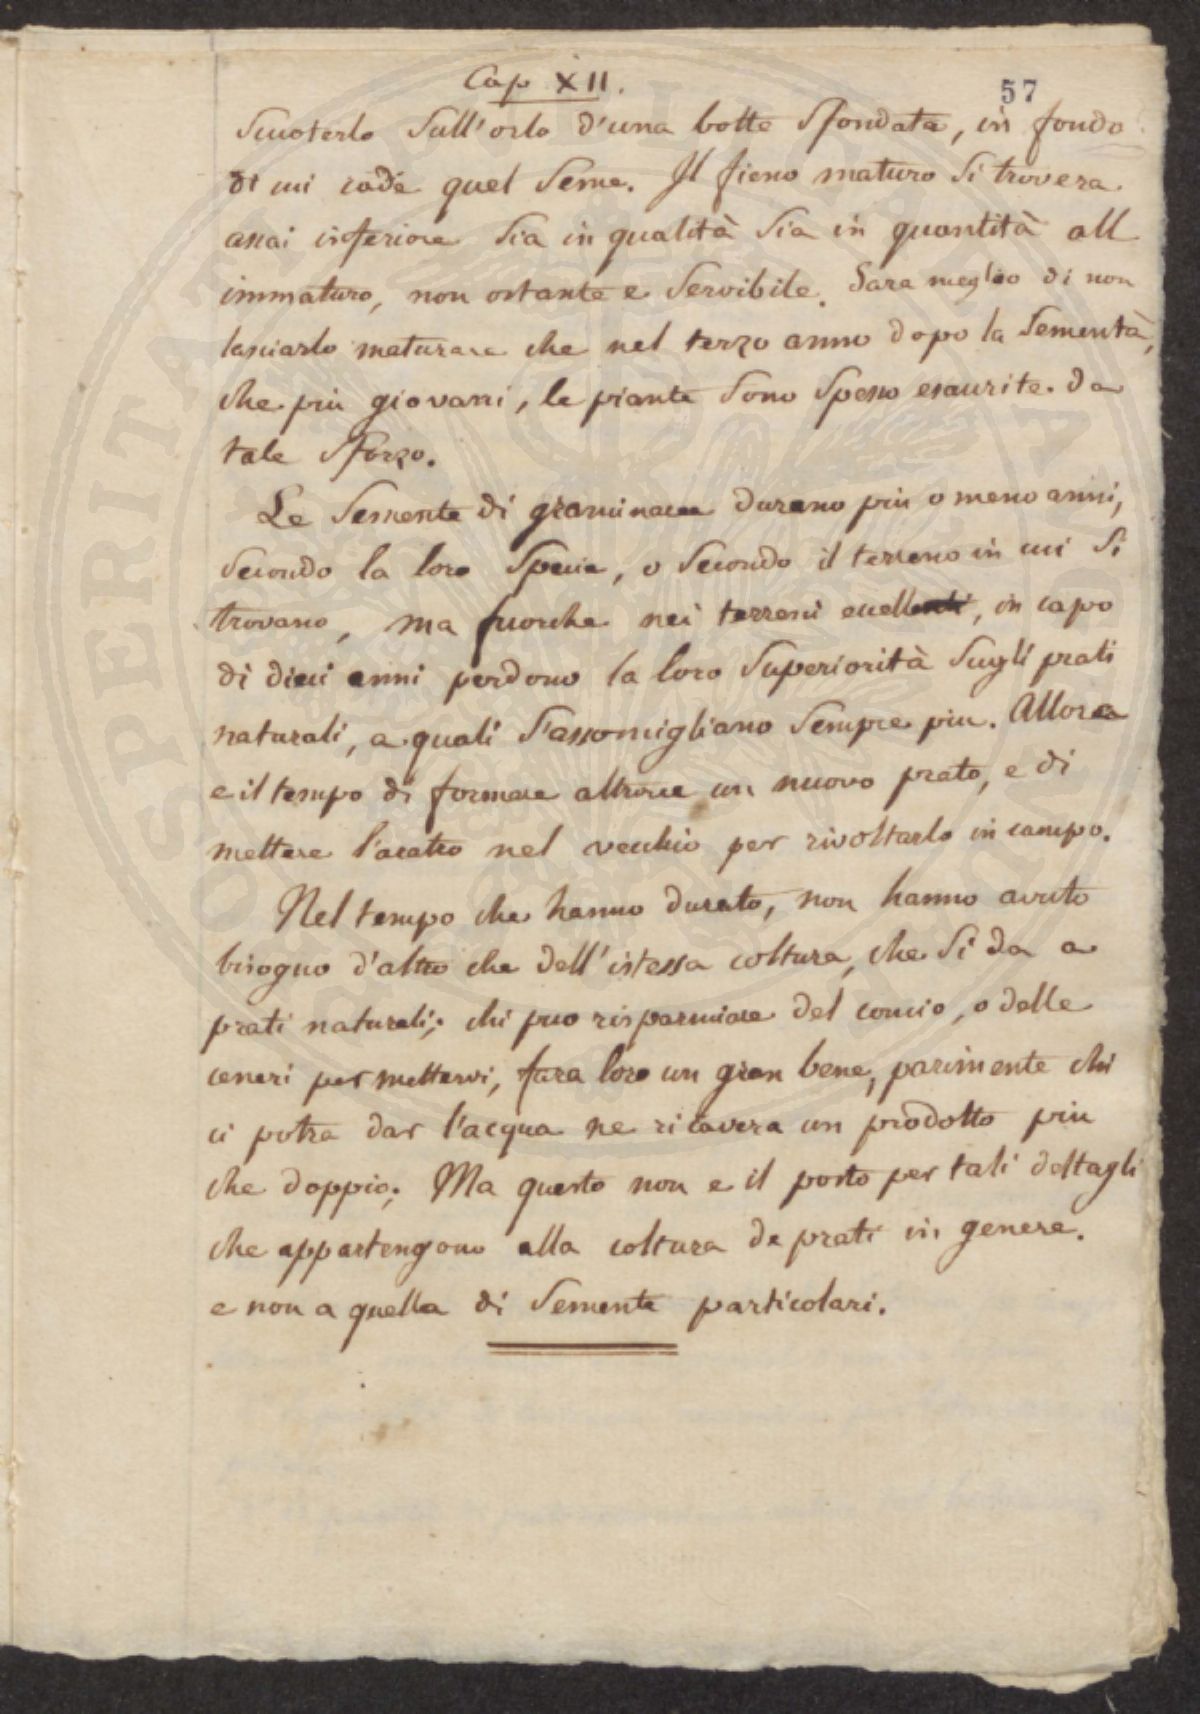 Cap XII.
57
Scuoterlo sull'orlo d'una botte sfondata, in fondo
di cui cade quel seme. Il fieno maturo si trovera
assai inferiore sia in qualità sia in quantità all
immaturo, non ostante e servibile. Sara meglio di non
lasciarlo maturare che nel terzo anno dopo la sementà,
che più giovani, le piante sono spesso esaurite da
tale sforzo.
Le semente di graminacee durano più o meno anni,
secondo la loro specie, o secondo il terreno in cui si
trovano, ma fuorche nei terreni eccellenti, in capo
di dieci anni perdono la loro superiorità sugli prati
naturali, a quali s'assomigliano sempre piu. Allora
e il tempo di formare altrove un nuovo prato, e di
mettere l'aratro nel vecchio per rivoltarlo in campo.
Nel tempo che hanno durato, non hanno avuto
bisogno d'altro che dell'istessa coltura, che si da a
prati naturali; chi puo risparmiare del concio, o delle
ceneri per mettervi, fara loro un gran bene, parimente chi
ci potra dar l'acqua ne ricavera un prodotto piu
che doppio. Ma questo non e il posto per tali dettagli
che appartengono alla coltura de prati in genere.
e non a quella di semente particolari.
PROSPERITATI PUBLICAE AUGENDAE